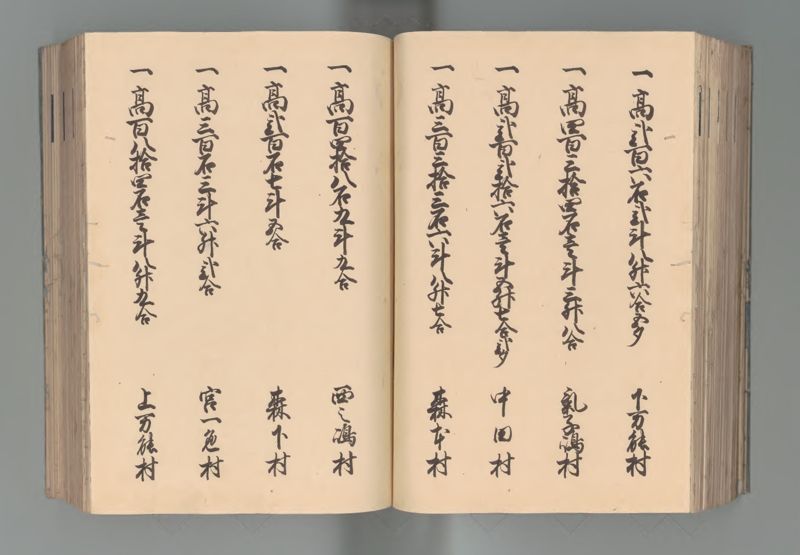 一 高弐百六石弐斗八升六合五夕 下万能村
一 高四百三拾四石壱斗三升八合 乳子嶋村
一 高弐百弐拾六石壱斗五升七合弐夕 中田村
一 高三百三拾三石六斗八升七合 森本村
一 高百四拾八石九斗九合 西之嶋村
一 高弐百石七斗五合 森下村
一 高三百石三斗六升弐合 宮一色村
一 高百八拾四石壱斗八升九合 上万能村